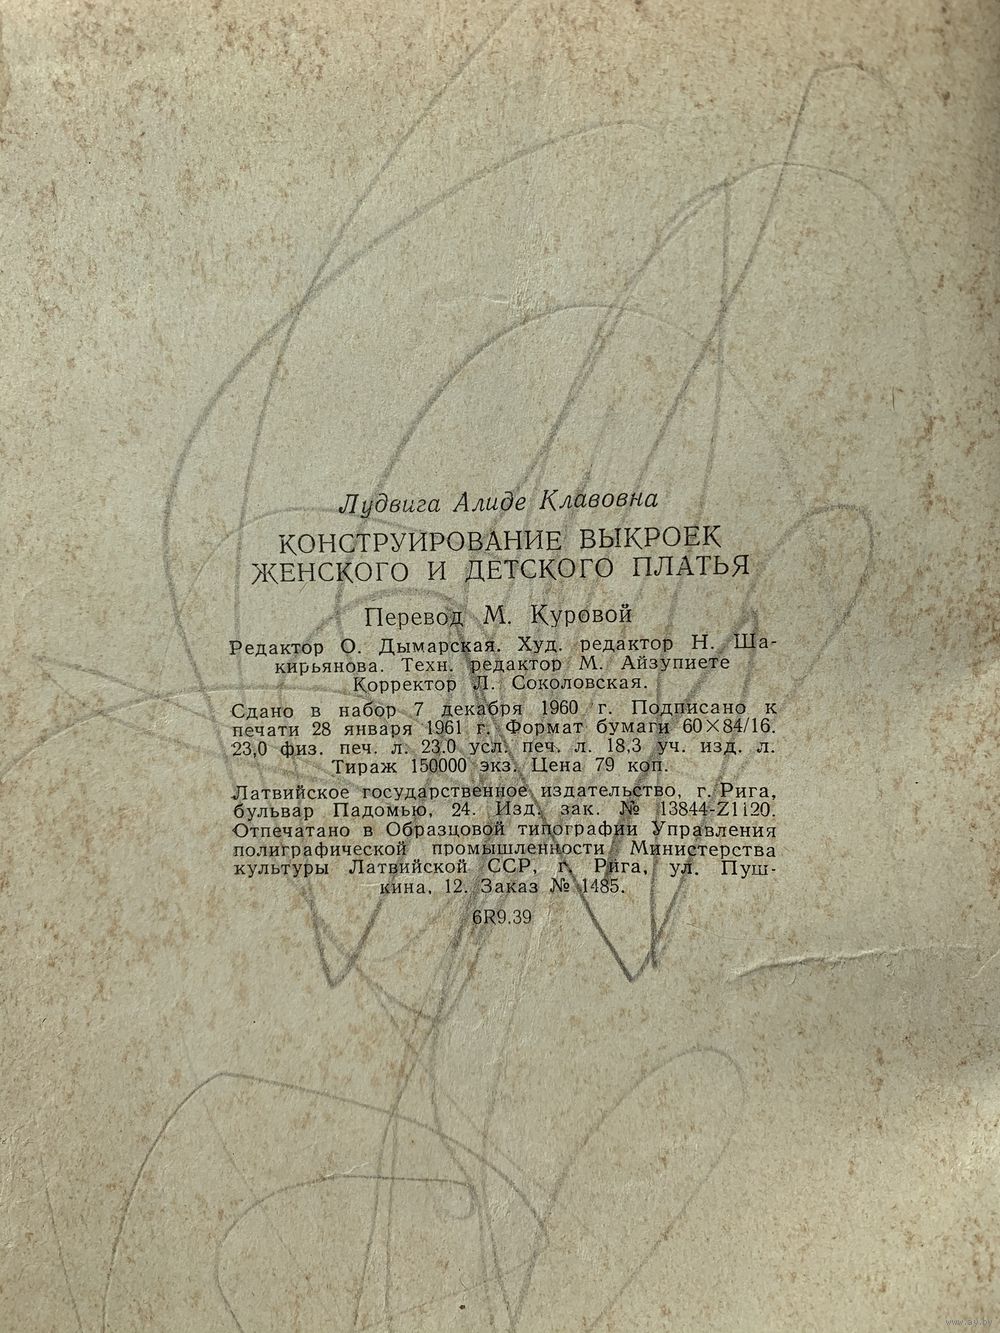 Лудвига Алиде Клавовна
КОНСТРУИРОВАНИЕ ВЫКРОЕК
ЖЕНСКОГО И ДЕТСКОГО ПЛАТЬЯ
Перевод М. Куровой
Редактор О. Дымарская. Худ. редактор Н. Ша-
кирьянова. Техн. редактор М. Айзупиете
Корректор Л. Соколовская.
Сдано в набор 7 декабря 1960 г. Подписано к
печати 28 января 1961 г. Формат бумаги 60×84/16.
23,0 физ. печ. л. 23.0 усл. печ. л. 18,3 уч. изд. л.
Тираж 150000 экз. Цена 79 коп.
Латвийское государственное издательство, г. Рига,
бульвар Падомью, 24. Изд. зак. № 13844-Z1120.
Отпечатано в Образцовой типографии Управления
полиграфической промышленности Министерства
культуры Латвийской ССР, г. Рига, ул. Пуш-
кина, 12. Заказ № 1485.
6R9.39
www.ay.by